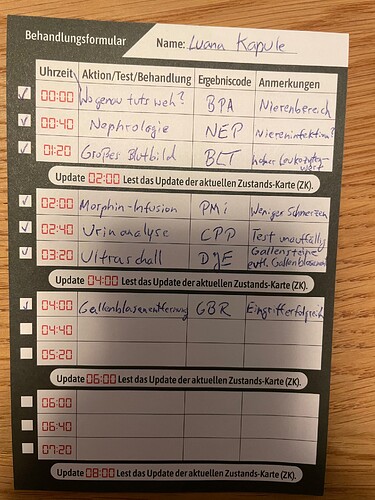 Behandlungsformular Name: Luana Kapule
Uhrzeit Aktion/Test/Behandlung Ergebniscode Anmerkungen
00:00 Wo genau tuts weh? BPA Nierenbereich
00:40 Nephrologie NEP Niereninfektion?
01:20 Großes Blutbild BCT hoher Leukozyten-
wert
Update 02:00 Lest das Update der aktuellen Zustands-Karte (ZK).
02:00 Morphin-Infusion PMi Weniger Schmerzen
02:40 Urinanalyse CPP Test unauffällig
03:20 Ultraschall DJE Gallensteine
evtl. Gallenblasen
Update 04:00 Lest das Update der aktuellen Zustands-Karte (ZK).
04:00 Gallenblasenentfernung GBR Eingriff erfolgreich
04:40
05:20
Update 06:00 Lest das Update der aktuellen Zustands-Karte (ZK).
06:00
06:40
07:20
Update 08:00 Lest das Update der aktuellen Zustands-Karte (ZK).